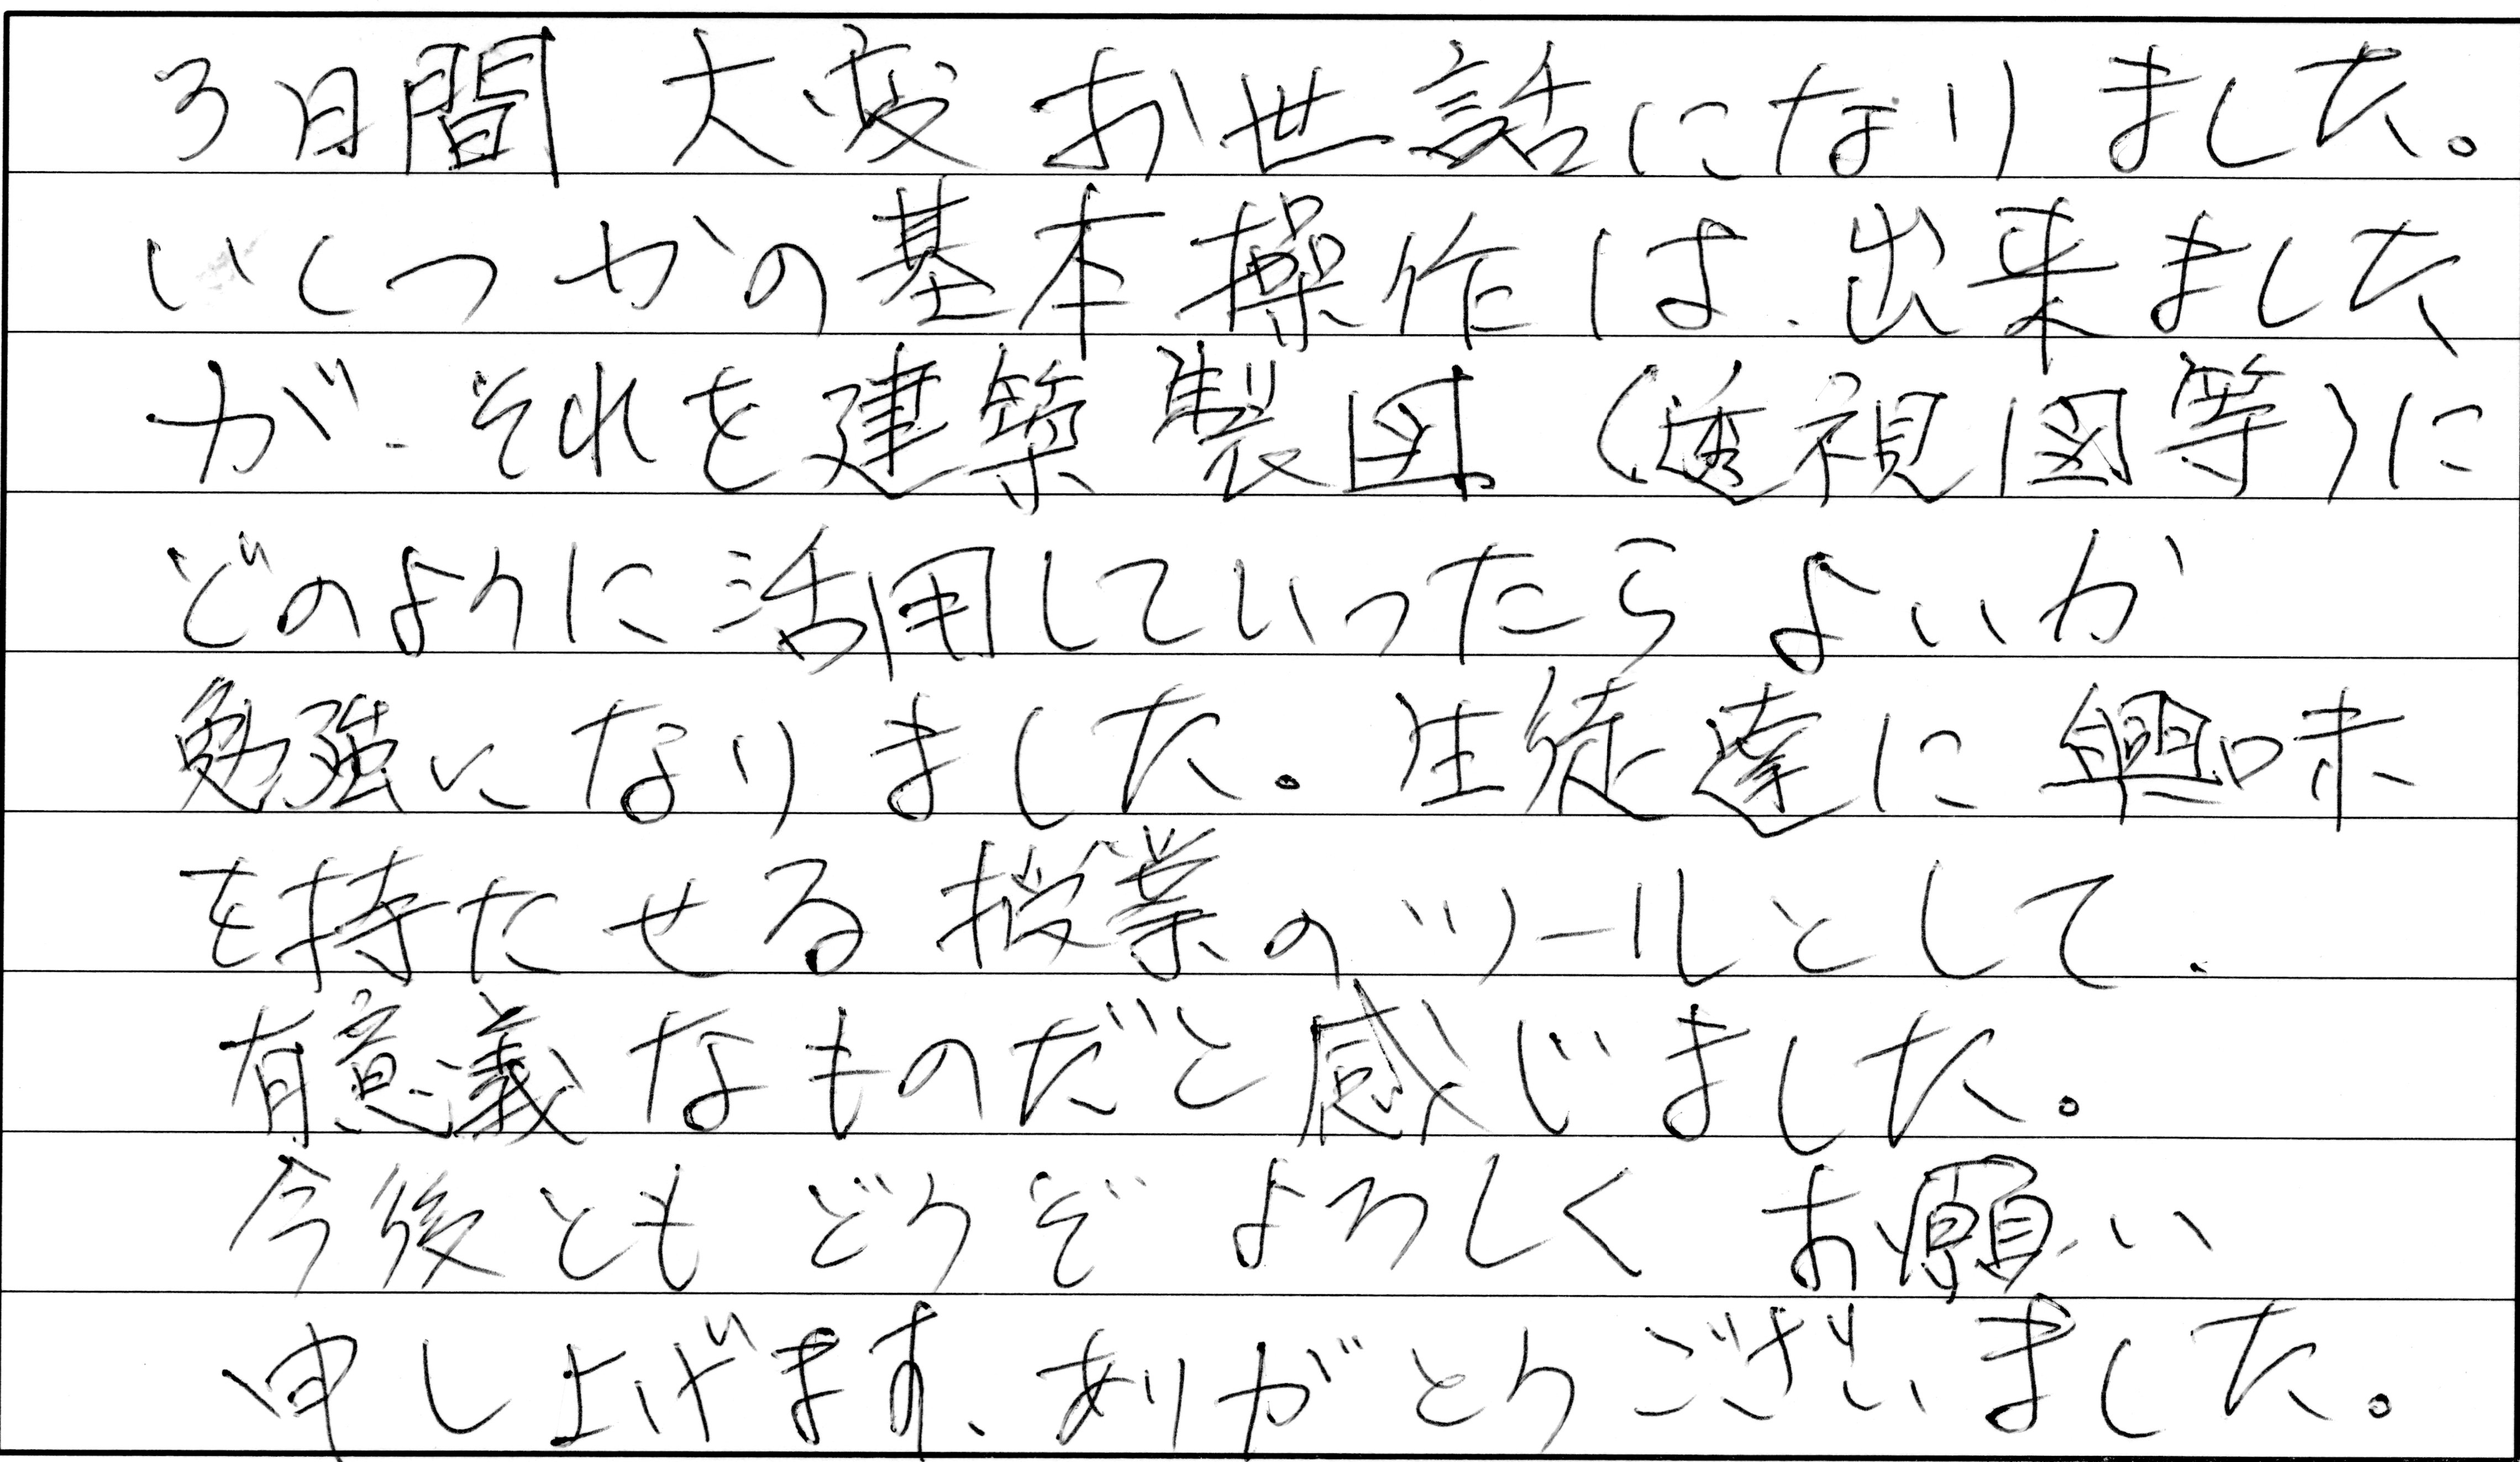 3日間 大変お世話になりました。
いくつかの基本操作は、出来ました
が、それを建築製図(透視図等)に
どのように活用していったらよいか
勉強になりました。生徒達に興味
を持たせる授業のツールとして、
有意義なものだと感じました。
今後とも どうぞ よろしく お願い
申し上げます、ありがとうございました。